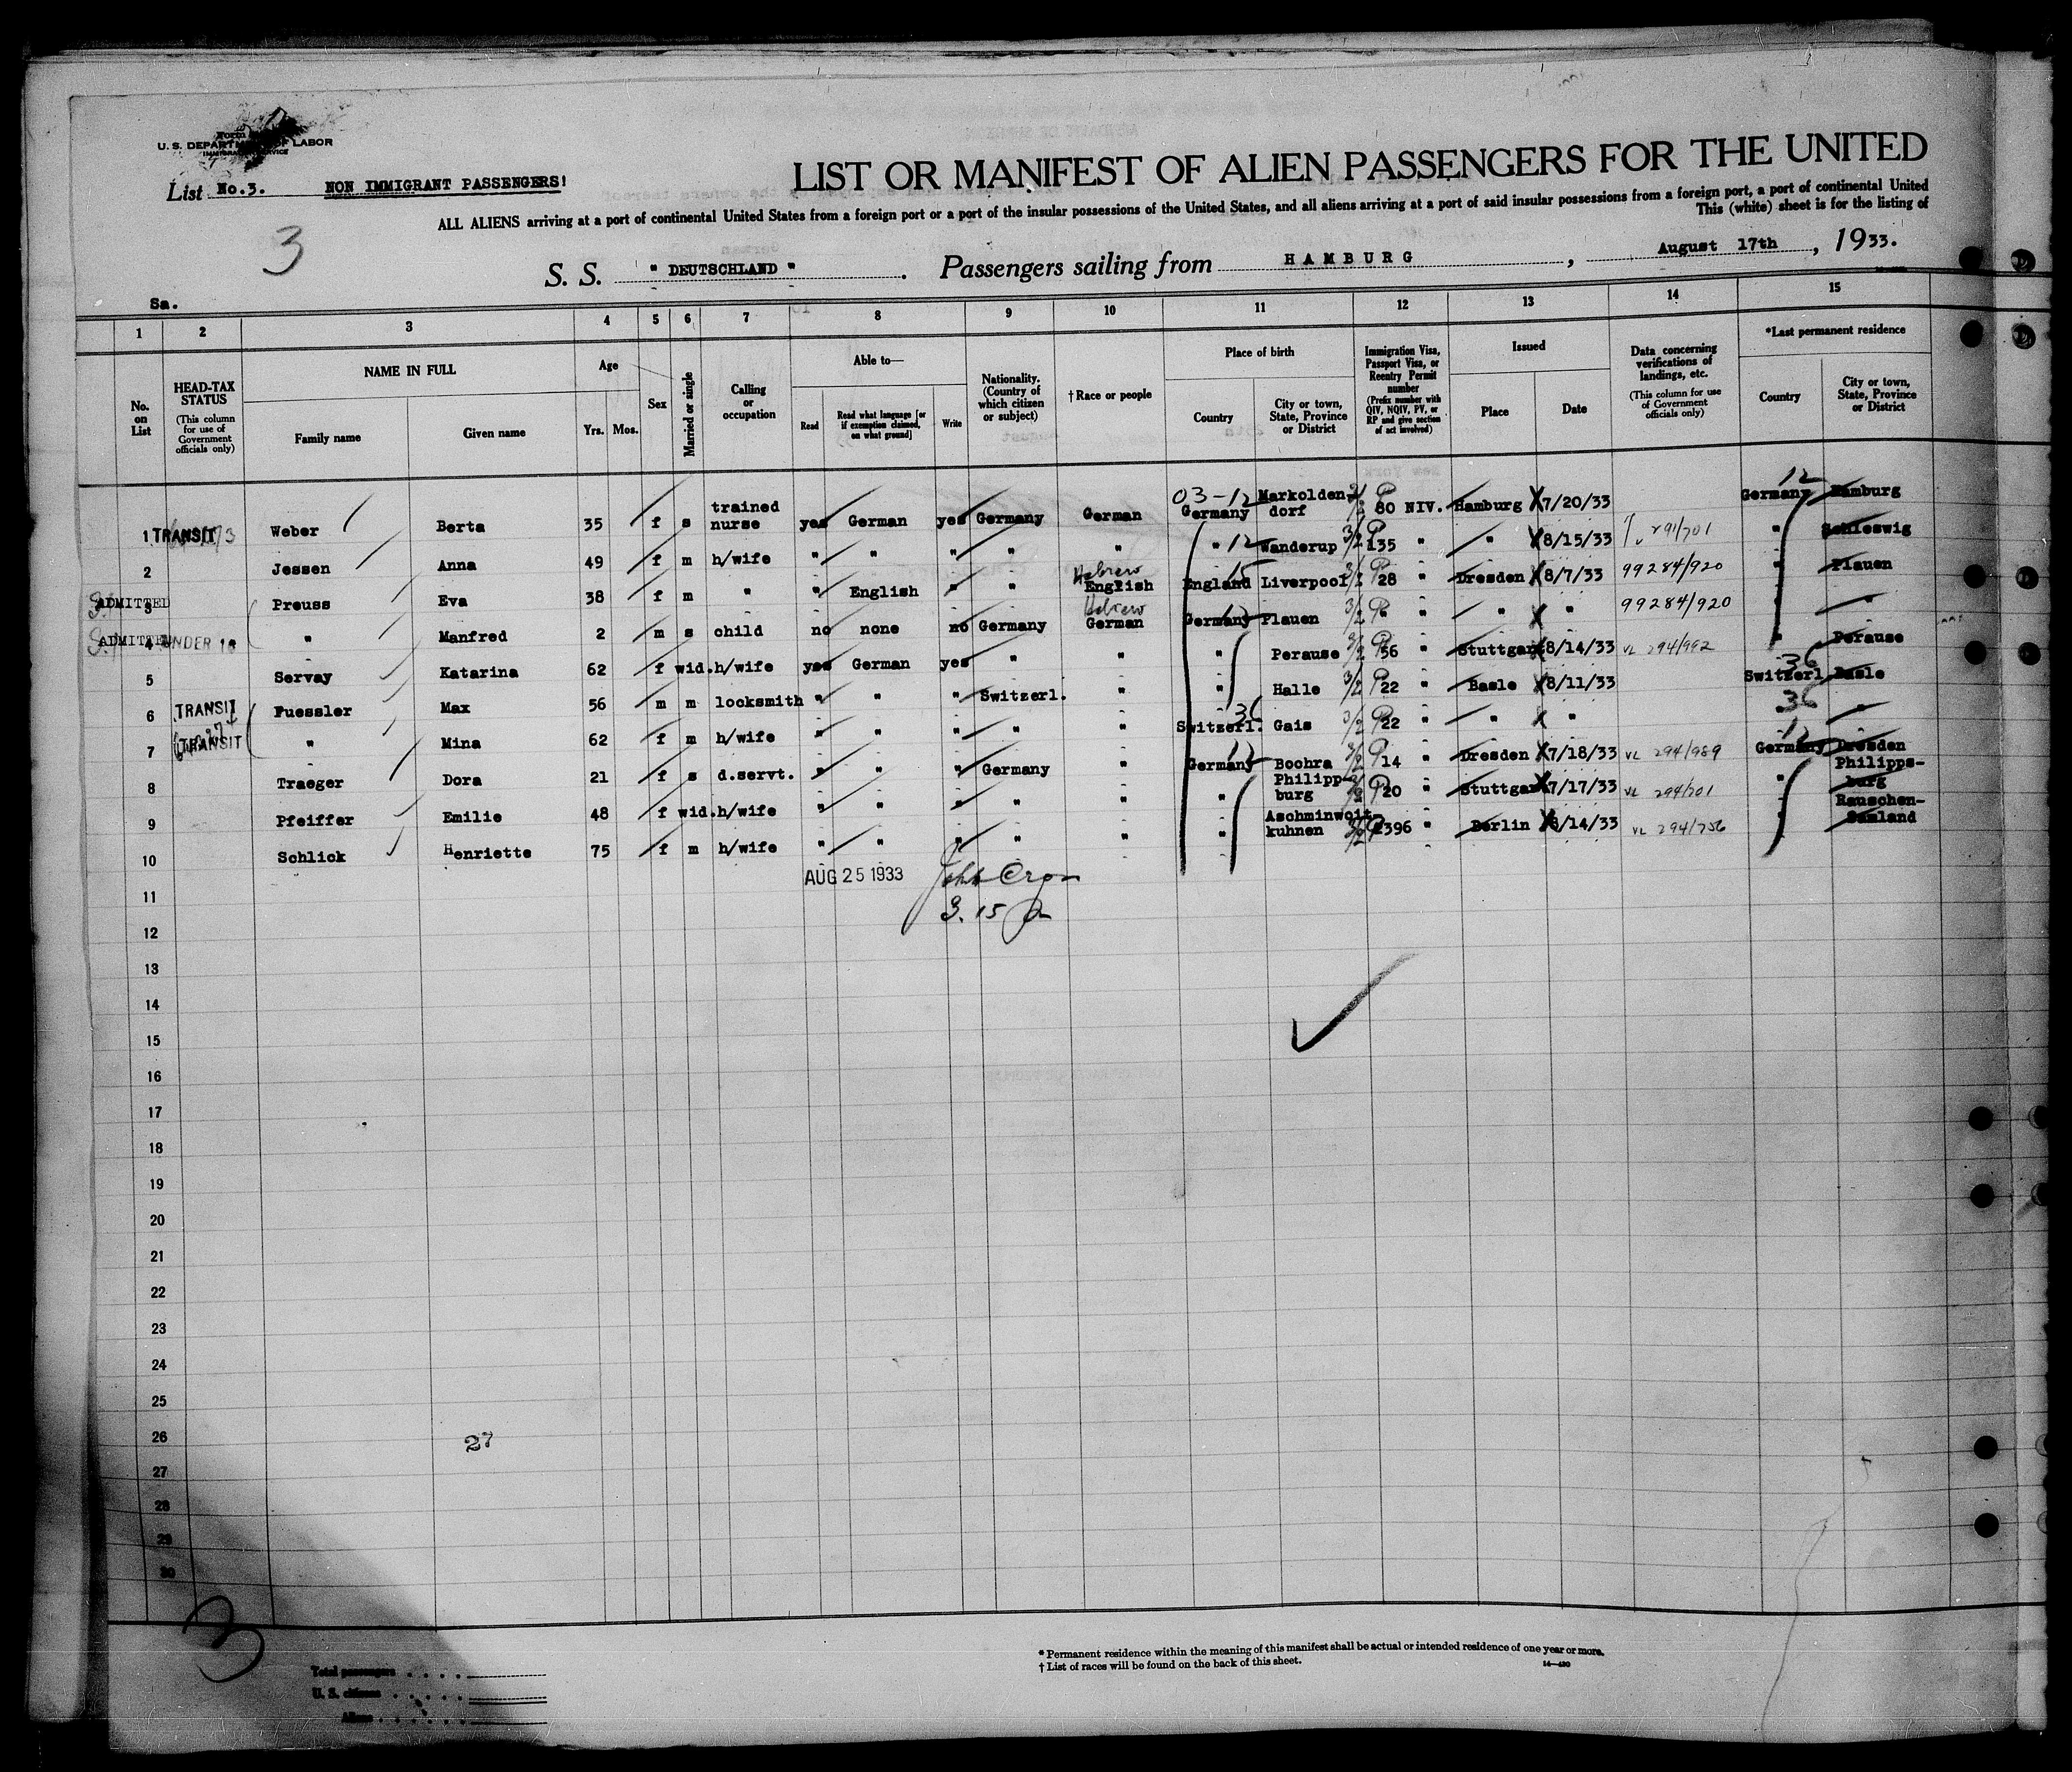 Form
U. S. DEPARTMENT OF LABOR
IMMIGRATION SERVICE
List No.3. NON IMMIGRANT PASSENGERS!
LIST OR MANIFEST OF ALIEN PASSENGERS FOR THE UNITED
ALL ALIENS arriving at a port of continental United States from a foreign port or a port of the insular possessions of the United States, and all aliens arriving at a port of said insular possessions from a foreign port, a port of continental United
This (white) sheet is for the listing of
3
S. S. " DEUTSCHLAND " . Passengers sailing from HAMBURG , August 17th , 1933.
Sa.
1 2 3 4 5 6 7 8 9 10 11 12 13 14 15
No. on List
HEAD-TAX STATUS (This column for use of Government officials only)
NAME IN FULL
Family name Given name
Age
Yrs. Mos.
Sex
Married or single
Calling or occupation
Able to—
Read Read what language [or if exemption claimed, on what ground] Write
Nationality. (Country of which citizen or subject)
†Race or people
Place of birth
Country City or town, State, Province or District
Immigration Visa, Passport Visa, or Reentry Permit number (Prefix number with QIV, NQIV, PV, or RP and give section of act involved)
Issued
Place Date
Data concerning verifications of landings, etc. (This column for use of Government officials only)
*Last permanent residence
Country City or town, State, Province or District
1 TRANSIT Weber Berta 35 f s trained nurse yes German yes Germany German 03-12 Germany Markoldendorf 3/2 P 80 NIV. Hamburg X 7/20/33 12 Germany Hamburg
2 Jessen Anna 49 f m h/wife " " " " " " 12 Wanderup 3/2 P 135 " " X 8/15/33 " Schleswig
3 ADMITTED Preuss Eva 38 f m " " English " " Hebrew English 15 England Liverpool 3/2 P 28 " Dresden X 8/7/33 99284/920 " Plauen
4 ADMITTED UNDER 16 " Manfred 2 m s child no none no Germany Hebrew German 12 Germany Plauen 3/2 P " " " X " 99284/920 " "
5 Servay Katarina 62 f wid. h/wife yes German yes " " " Perause 3/2 P 56 " Stuttgart X 8/14/33 VL 294/992 " Perouse
6 TRANSIT Fuessler Max 56 m m locksmith " " " Switzerl. " " Halle 3/2 P 22 " Basle X 8/11/33 36 Switzerl. Basle
7 TRANSIT " Mina 62 f m h/wife " " " " " 36 Switzerl. Gais 3/2 P 22 " " X " 36 "
8 Traeger Dora 21 f s d.servt. " " " Germany " 12 Germany Bochra 3/2 P 14 " Dresden X 7/18/33 VL 294/989 12 Germany Dresden
9 Pfeiffer Emilie 48 f wid. h/wife " " " " " " Philippburg 3/2 P 20 " Stuttgart X 7/17/33 VL 294/701 " Philippsburg
10 Schlick Henriette 75 f m h/wife " " " " " " Aschminwoitkuhnen 3/2 P 2396 " Berlin X 8/14/33 VL 294/756 " Rauschen-Samland
11 AUG 25 1933
3.15 P
12
13
14
15
16
17
18
19
20
21
22
23
24
25
26 27
27
28
29
30
3
Total passengers
U. S. citizens
Aliens
* Permanent residence within the meaning of this manifest shall be actual or intended residence of one year or more.
† List of races will be found on the back of this sheet. 14—430